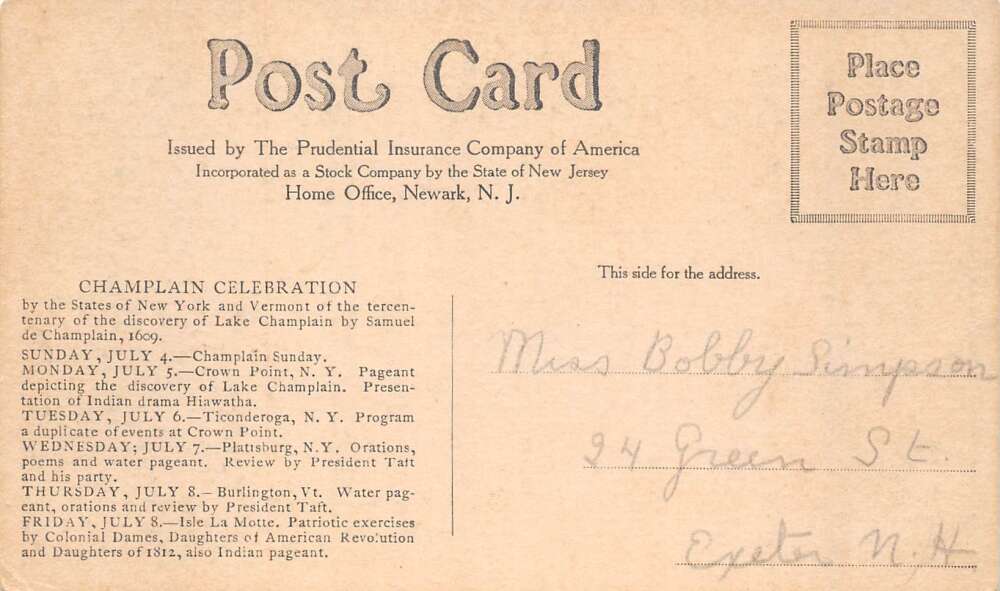 Post Card
Place
Postage
Stamp
Here
Issued by The Prudential Insurance Company of America
Incorporated as a Stock Company by the State of New Jersey
Home Office, Newark, N. J.
This side for the address.
CHAMPLAIN CELEBRATION
by the States of New York and Vermont of the tercen-
tenary of the discovery of Lake Champlain by Samuel
de Champlain, 1609.
SUNDAY, JULY 4.—Champlain Sunday.
MONDAY, JULY 5.—Crown Point, N. Y. Pageant
depicting the discovery of Lake Champlain. Presen-
tation of Indian drama Hiawatha.
TUESDAY, JULY 6.—Ticonderoga, N. Y. Program
a duplicate of events at Crown Point.
WEDNESDAY; JULY 7.—Plattsburg, N.Y. Orations,
poems and water pageant. Review by President Taft
and his party.
THURSDAY, JULY 8.—Burlington, Vt. Water pag-
eant, orations and review by President Taft.
FRIDAY, JULY 8.—Isle La Motte. Patriotic exercises
by Colonial Dames, Daughters of American Revolution
and Daughters of 1812, also Indian pageant.
Miss Bobby Simpson
24 Green St.
Exeter N.H.